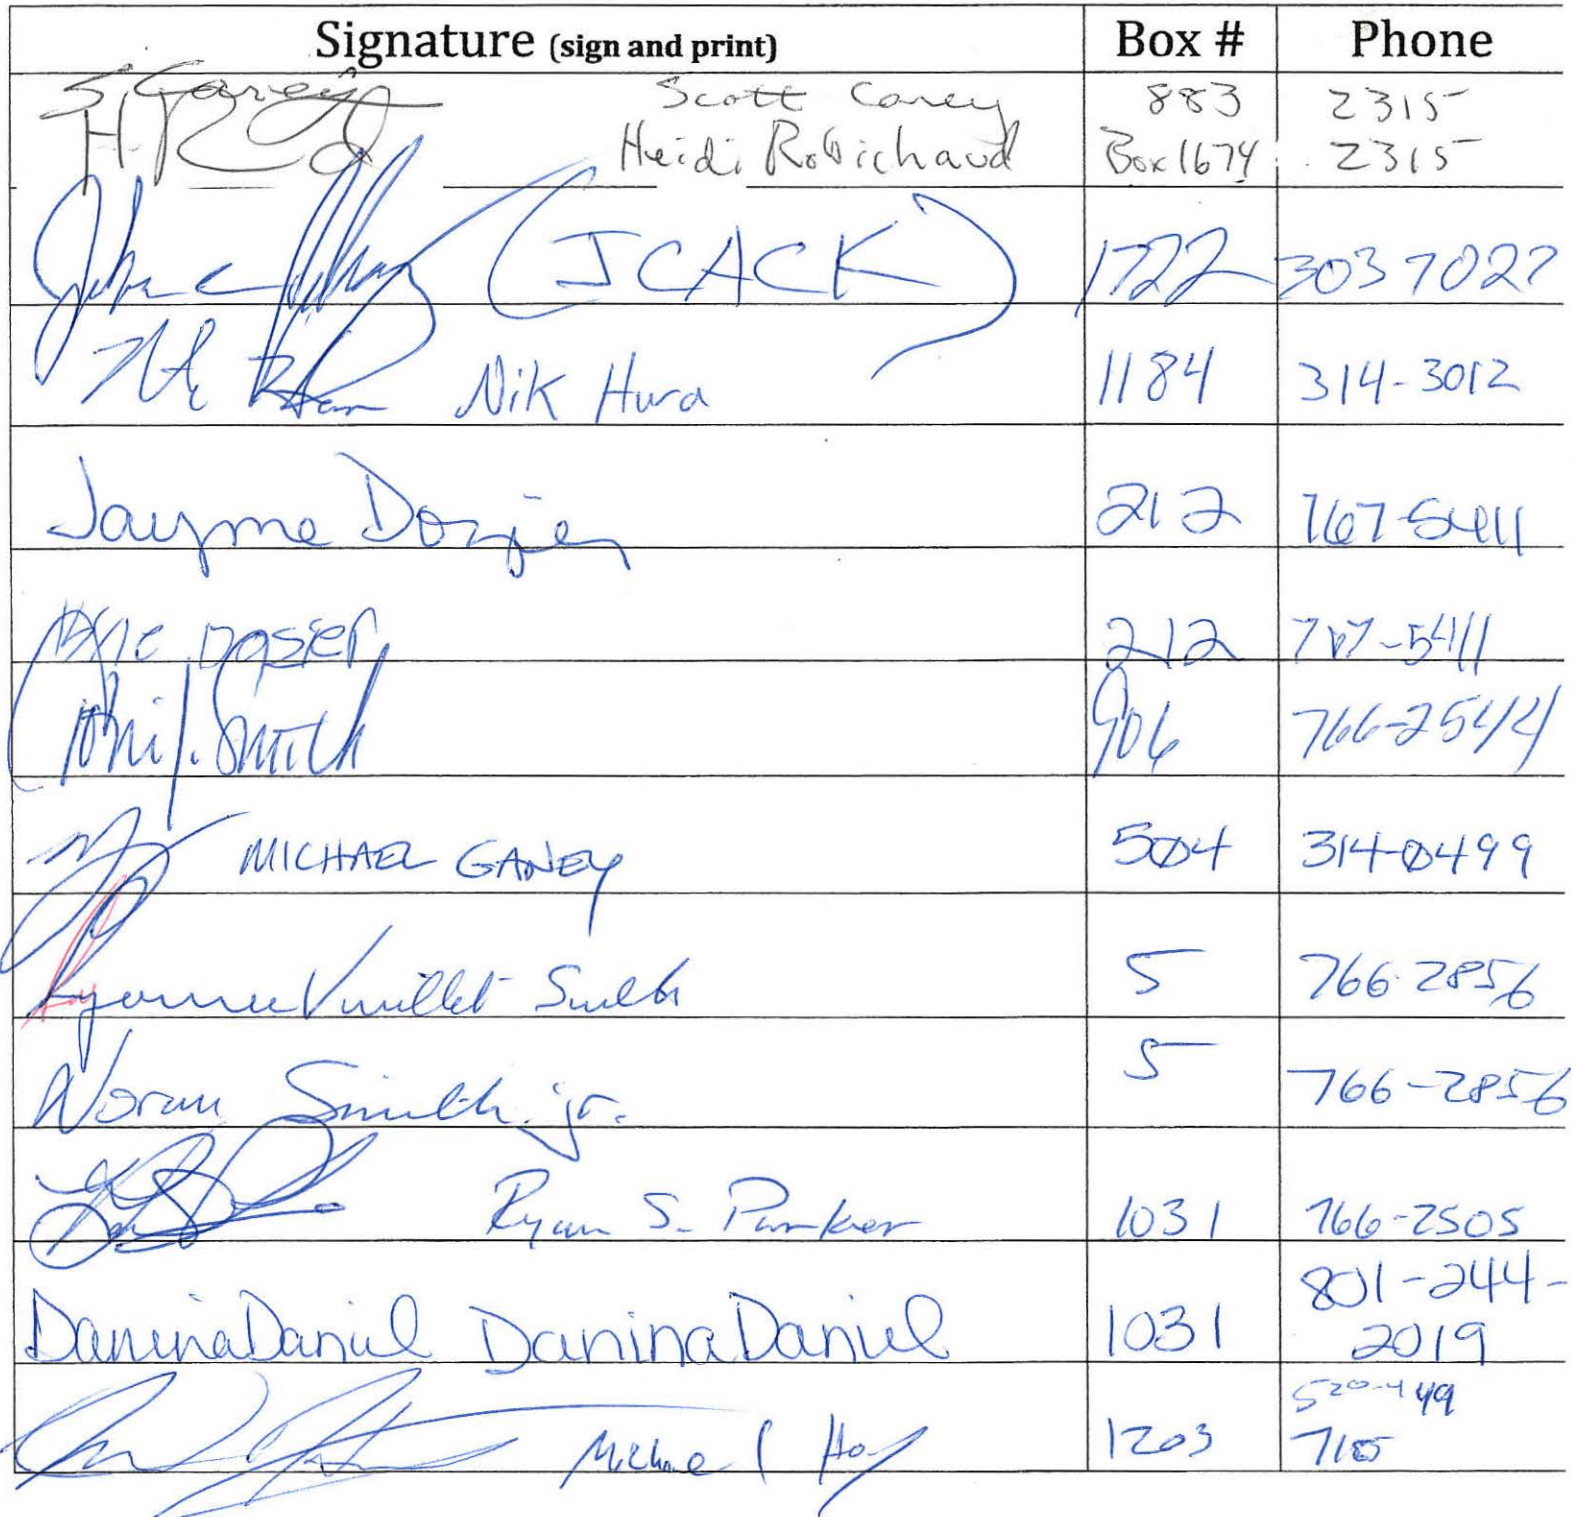 Signature (sign and print) Box # Phone
S. Carey Scott Carey 883 2315
Heidi Robichaud Box 1674 2315
(JCACK) 1722 303 7027
Nik Hura 1184 314-3012
Jayme Dozier 212 767-5411
Dosier 212 767-5411
Phil J. Smith 906 766-2544
MICHAEL GANEY 504 314-0499
Vuillet Smith 5 766-2856
Noran Smith jr. 5 766-2856
Ryan S. Parker 1031 766-2505
Danina Daniel Danina Daniel 1031 801-244-
2019
520-449
Michael Hoy 1203